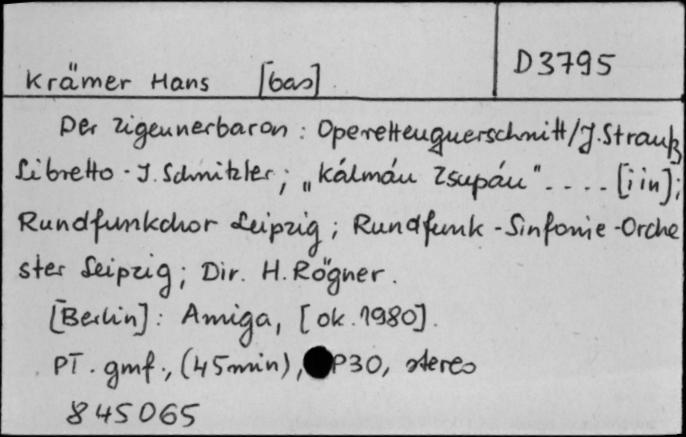 Krämer Hans [bas]
D3795
Der Zigeunerbaron : Operettenquerschnitt/J. Strauß
Libretto - J. Schnitzler; „Kálmán Zsupán" .... [i in];
Rundfunkchor Leipzig; Rundfunk-Sinfonie-Orche
ster Leipzig; Dir. H. Rögner.
[Berlin]: Amiga, [ok. 1980].
PT. gmf., (45 min), P30, stereo
845065